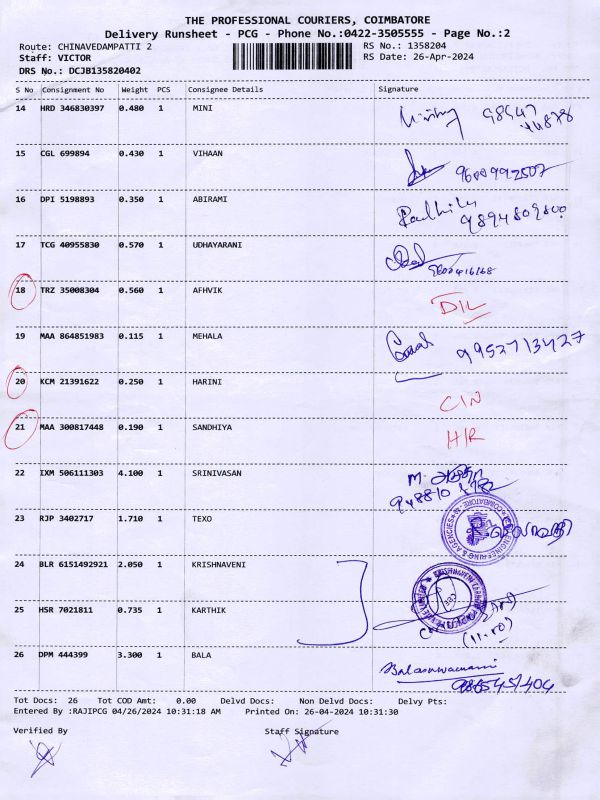 THE PROFESSIONAL COURIERS, COIMBATORE
Delivery Runsheet - PCG - Phone No.:0422-3505555 - Page No.:2
Route: CHINAVEDAMPATTI 2 RS No.: 1358204
Staff: VICTOR RS Date: 26-Apr-2024
DRS No.: DCJB135820402
S No Consignment No Weight PCS Consignee Details Signature
14 HRD 346830397 0.480 1 MINI
15 CGL 699894 0.430 1 VIHAAN 9600992507
16 DPI 5198893 0.350 1 ABIRAMI 9894809800
17 TCG 40955830 0.570 1 UDHAYARANI
18 TRZ 35008304 0.560 1 AFHVIK DIL
19 MAA 864851983 0.115 1 MEHALA 9952713427
20 KCM 21391622 0.250 1 HARINI CIN
21 MAA 300817448 0.190 1 SANDHIYA HIR
22 IXM 506111303 4.100 1 SRINIVASAN
23 RJP 3402717 1.710 1 TEXO
ENGINEERING & AGENCIES COIMBATORE
24 BLR 6151492921 2.050 1 KRISHNAVENI
25 HSR 7021811 0.735 1 KARTHIK
26 DPM 444399 3.300 1 BALA
Tot Docs: 26 Tot COD Amt: 0.00 Delvd Docs: Non Delvd Docs: Delvy Pts:
Entered By :RAJIPCG 04/26/2024 10:31:18 AM Printed On: 26-04-2024 10:31:30
Verified By Staff Signature